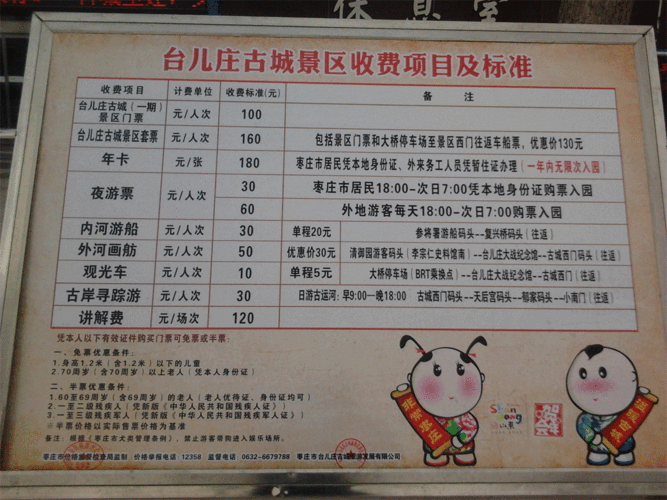 休息室
台儿庄古城景区收费项目及标准
收费项目 计费单位 收费标准(元) 备 注
台儿庄古城（一期）景区门票 元/人次 100
台儿庄古城景区套票 元/人次 160 包括景区门票和大桥停车场至景区西门往返车船票，优惠价130元
年卡 元/张 180 枣庄市居民凭本地身份证、外来务工人员凭暂住证办理（一年内无限次入园）
夜游票 元/人次 30 枣庄市居民18:00-次日7:00凭本地身份证购票入园
60 外地游客每天18:00-次日7:00购票入园
内河游船 元/人次 30 单程20元 参将署游船码头--复兴桥码头（往返）
外河画舫 元/人次 50 优惠价30元 清御园游客码头（李宗仁史料馆南）--台儿庄大战纪念馆--古城西门码头（往返）
观光车 元/人次 10 单程5元 大桥停车场（BRT乘换点）--台儿庄大战纪念馆--古城西门（往返）
古岸寻踪游 元/人次 30 日游古运河：早9:00—晚18:00 古城西门码头--天后宫码头--郁家码头--小南门（往返）
讲解费 元/场次 120
凭本人以下有效证件购买门票可免票或半票：
一、免票优惠条件：
1.身高1.2米（含1.2米）以下的儿童
2.70周岁（含70周岁）以上老人（凭本人身份证）
二、半票优惠条件：
1.60至69周岁（含69周岁）的老人（老人优待证、身份证均可）
2.一至二级残疾人（凭新版《中华人民共和国残疾人证》）
3.一至三级残疾军人（凭新版《中华人民共和国残疾军人证》）
※半票价格以实际售票价格为基准
备注：根据《枣庄市犬类管理条例》，禁止游客带狗进入娱乐场所。
枣庄市价格监督检查局监制 价格举报电话：12358 监督电话：0632-6679788 枣庄市台儿庄古城旅游发展有限公司
贺年会